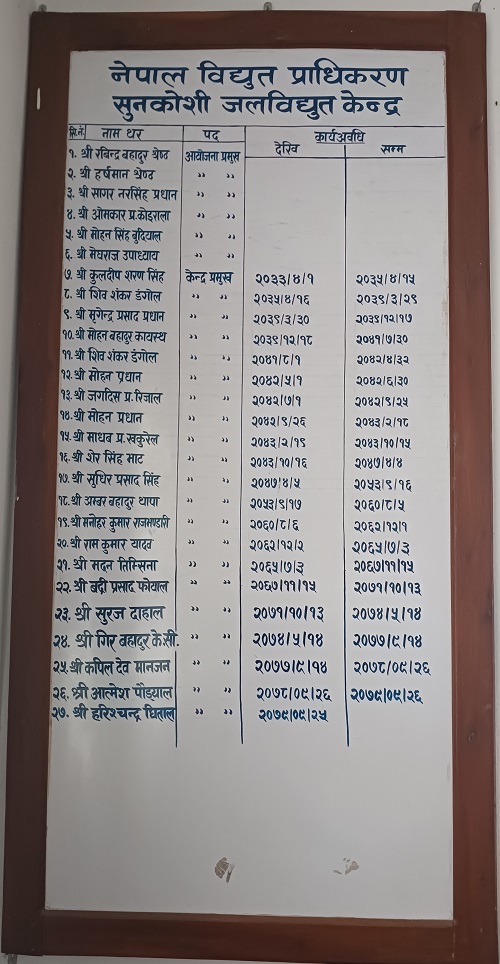 नेपाल विद्युत प्राधिकरण
सुनकोशी जलविद्युत केन्द्र
सि.नं. नाम थर पद कार्यअवधि
देखि सम्म
१. श्री रबिन्द्र बहादुर श्रेष्ठ आयोजना प्रमुख
२. श्री हर्षमान श्रेष्ठ " "
३. श्री सागर नरसिंह प्रधान " "
४. श्री ओमकार प्र. कोइराला " "
५. श्री मोहन सिंह बुदियाल " "
६. श्री मेघराज उपाध्याय " "
७. श्री कुलदीप शरण सिंह केन्द्र प्रमुख २०३३/४/१ २०३५/४/१५
८. श्री शिव शंकर डंगोल " " २०३५/४/१६ २०३९/३/२९
९. श्री मृगेन्द्र प्रसाद प्रधान " " २०३९/३/३० २०३९/१२/१७
१०. श्री मोहन बहादुर कायस्थ " " २०३९/१२/१८ २०४१/७/३०
११. श्री शिव शंकर डंगोल " " २०४१/८/१ २०४२/४/३२
१२. श्री मोहन प्रधान " " २०४२/५/१ २०४२/६/३०
१३. श्री जगदिस प्र. रिजाल " " २०४२/७/१ २०४२/९/२५
१४. श्री मोहन प्रधान " " २०४२/९/२६ २०४३/२/१८
१५. श्री माधब प्र. खकुरेल " " २०४३/२/१९ २०४३/१०/१५
१६. श्री शेर सिंह भाट " " २०४३/१०/१६ २०४७/४/४
१७. श्री सुधिर प्रसाद सिंह " " २०४७/४/५ २०५३/९/१६
१८. श्री अम्बर बहादुर थापा " " २०५३/९/१७ २०६०/८/५
१९. श्री मनोहर कुमार राजभण्डारी " " २०६०/८/६ २०६२/१२/१
२०. श्री राम कुमार यादव " " २०६२/१२/२ २०६५/७/३
२१. श्री मदन तिम्सिना " " २०६५/७/३ २०६७/११/१५
२२. श्री बद्री प्रसाद फोयाल " " २०६७/११/१५ २०७१/१०/१३
२३. श्री सुरज दाहाल " " २०७१/१०/१३ २०७४/५/१४
२४. श्री गिर बहादुर के.सी. " " २०७४/५/१४ २०७७/९/१४
२५. श्री कपिल देव मानजन " " २०७७/९/१४ २०७८/०९/२६
२६. श्री आत्मेश पौड्याल " " २०७८/०९/२६ २०७९/०९/२६
२७. श्री हरिश्चन्द्र घिताल " " २०७९/०९/२५